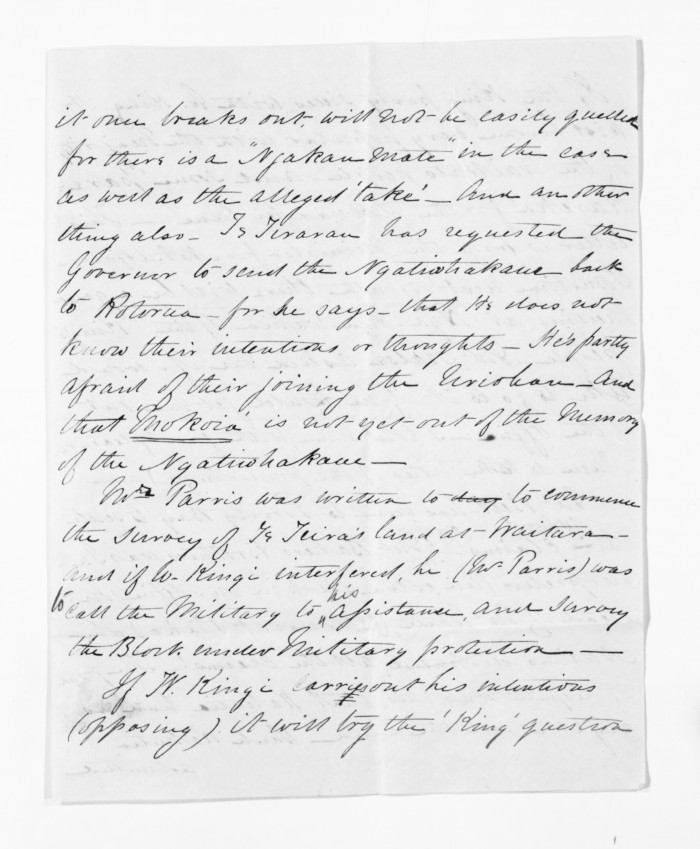 it once breaks out, will not be easily quelled
for there is a "Ngakau mate" in the case
as well as the alleged 'take' - And another
thing also - Te Tirarau has requested the
Governor to send the Ngatiwhakaue back
to Rotorua - for he says - that He does not
know their intentions or thoughts - He's partly
afraid of their joining the Uriohau - And
that 'Mokoia' is not yet out of the Memory
of the Ngatiwhakaue -
Mr Parris was written to day to commence
the survey of Te Teira's land at Waitara -
and if W. Kingi interfered, he (Mr Parris) was
to call the Military to his Assistance, and survey
the Block under Military protection -
If W. Kingi carries out his intentions
(opposing) it will try the 'King' question